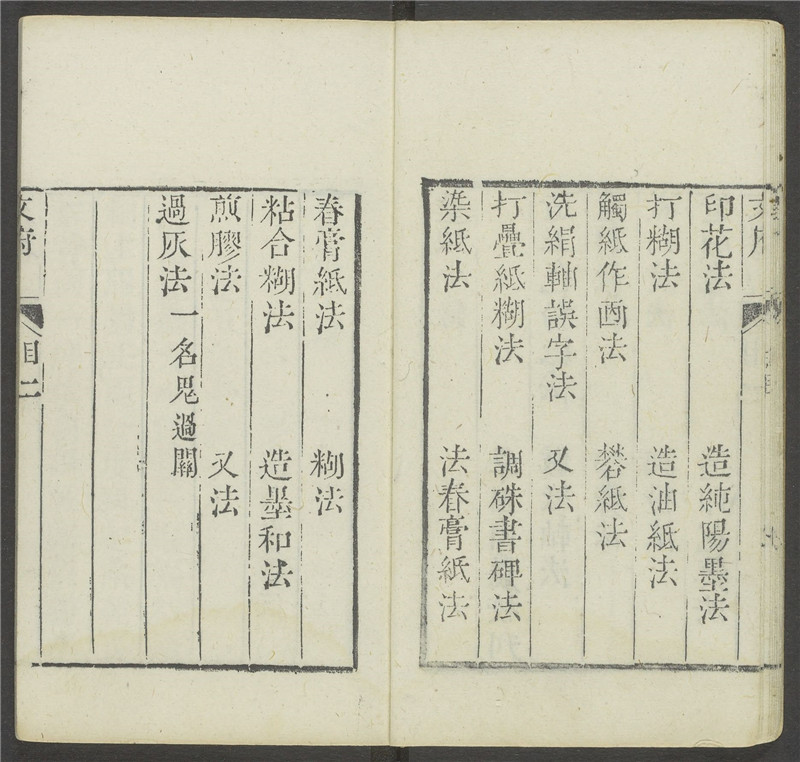 印花法 造純陽墨法
打糊法 造油紙法
觸紙作画法 礬紙法
洗絹軸誤字法 又法
打疊紙糊法 調硃書碑法
染紙法 法春膏紙法
春膏紙法 糊法
粘合糊法 造墨和法
煎膠法 又法
過灰法 一名鬼過關
文府 目二